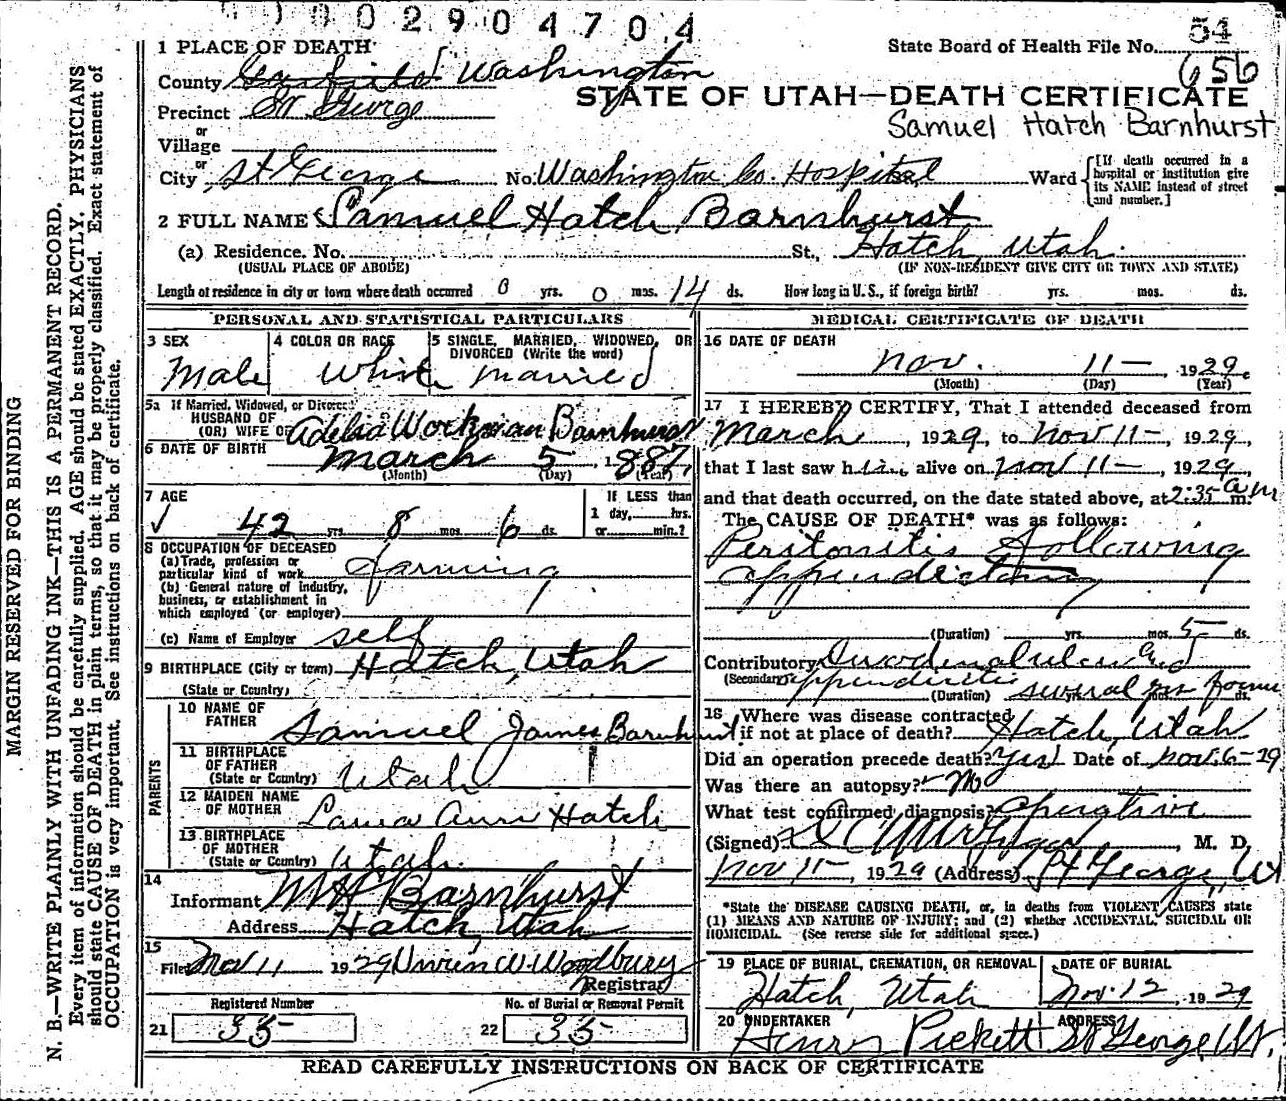 0002904704
54
1 PLACE OF DEATH
State Board of Health File No.
656
County Garfield Washington
STATE OF UTAH—DEATH CERTIFICATE
Precinct St George
Samuel Hatch Barnhurst
or
Village
or
City St George No. Washington Co. Hospital Ward
[If death occurred in a hospital or institution give its NAME instead of street and number.]
2 FULL NAME Samuel Hatch Barnhurst
(a) Residence. No. St., Hatch, Utah.
(USUAL PLACE OF ABODE) (IF NON-RESIDENT GIVE CITY OR TOWN AND STATE)
Length of residence in city or town where death occurred 0 yrs. 0 mos. 14 ds. How long in U.S., if foreign birth? yrs. mos. ds.
PERSONAL AND STATISTICAL PARTICULARS
3 SEX
Male
4 COLOR OR RACE
White
5 SINGLE, MARRIED, WIDOWED, OR DIVORCED (Write the word)
married
5a If Married, Widowed, or Divorced
HUSBAND OF
(OR) WIFE OF Adelia Workman Barnhurst
6 DATE OF BIRTH March 5, 1887
(Month) (Day) (Year)
7 AGE
42 yrs. 8 mos. 6 ds.
If LESS than
1 day, hrs.
or min.?
8 OCCUPATION OF DECEASED
(a) Trade, profession or
particular kind of work farming
(b) General nature of industry,
business, or establishment in
which employed (or employer)
(c) Name of Employer self
9 BIRTHPLACE (City or town) Hatch, Utah
(State or Country)
PARENTS
10 NAME OF
FATHER Samuel James Barnhurst
11 BIRTHPLACE
OF FATHER
(State or Country) Utah
12 MAIDEN NAME
OF MOTHER Laura Ann Hatch
13 BIRTHPLACE
OF MOTHER
(State or Country) Utah.
14
Informant M H Barnhurst
Address Hatch, Utah
15
Filed Nov 11 1929 W. Woodbury
Registrar
Registered Number
21 35
No. of Burial or Removal Permit
22 35
MEDICAL CERTIFICATE OF DEATH
16 DATE OF DEATH
Nov. 11— , 1929.
(Month) (Day) (Year)
17 I HEREBY CERTIFY, That I attended deceased from
March , 1929, to Nov 11— , 1929,
that I last saw him alive on Nov 11— , 1929,
and that death occurred, on the date stated above, at 2:35 a m.
The CAUSE OF DEATH* was as follows:
Peritonitis following
(Duration) yrs. mos. 5 ds.
Contributory Duodenal ulcer and
(Secondary) appendicitis
(Duration) several yrs. mos. ds.
18 Where was disease contracted
if not at place of death? Hatch, Utah
Did an operation precede death? Yes Date of Nov. 6-29
Was there an autopsy? No
What test confirmed diagnosis? operative
(Signed) , M. D.
Nov 11— , 1929 (Address) St George, Ut
*State the DISEASE CAUSING DEATH, or, in deaths from VIOLENT CAUSES state
(1) MEANS AND NATURE OF INJURY; and (2) whether ACCIDENTAL, SUICIDAL OR
HOMICIDAL. (See reverse side for additional space.)
19 PLACE OF BURIAL, CREMATION, OR REMOVAL
Hatch, Utah
DATE OF BURIAL
Nov. 12, 1929
20 UNDERTAKER
Henry Pickett
ADDRESS
St George Ut.
READ CAREFULLY INSTRUCTIONS ON BACK OF CERTIFICATE
MARGIN RESERVED FOR BINDING
N. B.—WRITE PLAINLY WITH UNFADING INK—THIS IS A PERMANENT RECORD.
Every item of information should be carefully supplied. AGE should be stated EXACTLY. PHYSICIANS
should state CAUSE OF DEATH in plain terms, so that it may be properly classified. Exact statement of
OCCUPATION is very important. See instructions on back of certificate.